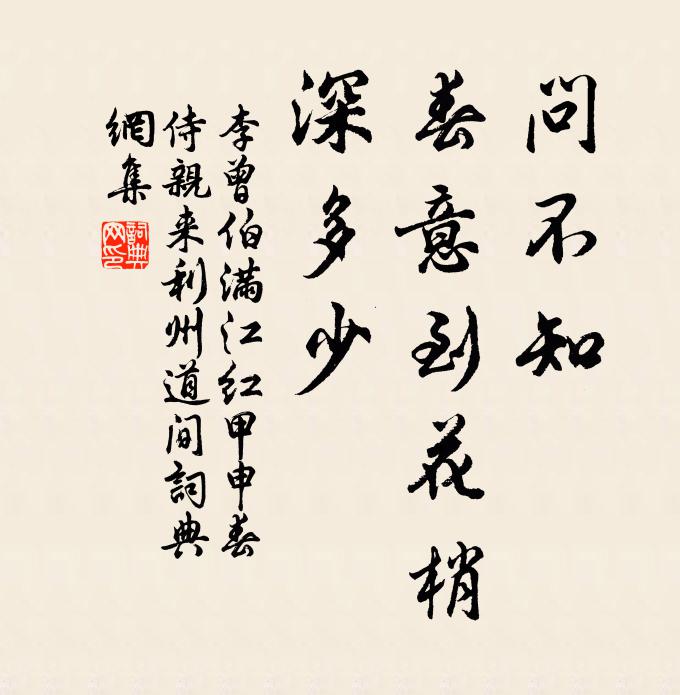 問不知
春意到花梢
深多少
李曾伯滿江紅甲申春
侍親来利州道间詞典
網集
詞典
网印